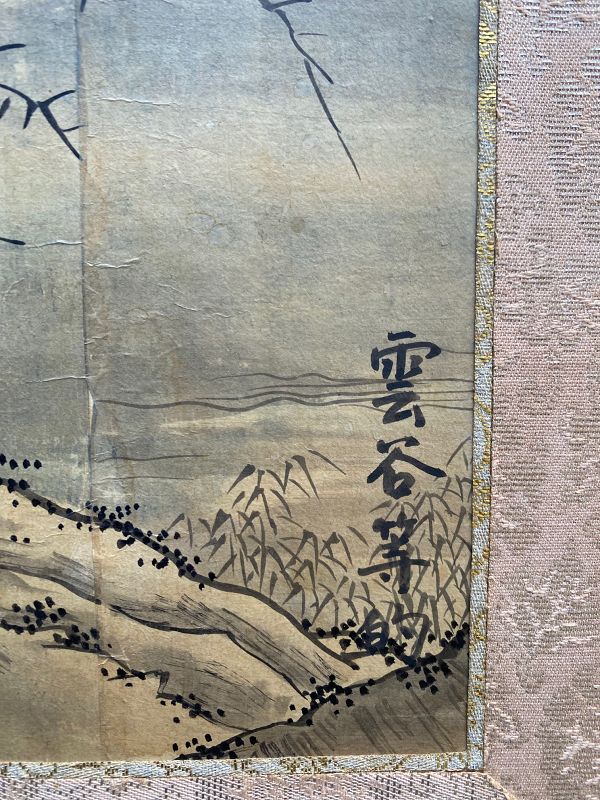 雲谷等的